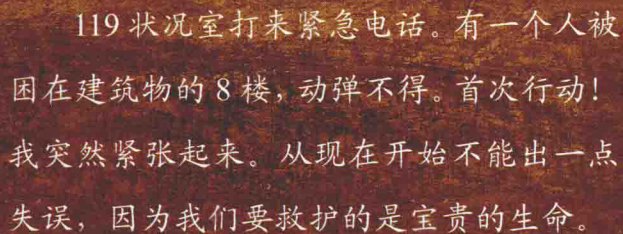 119状况室打来紧急电话。有一个人被
困在建筑物的8楼，动弹不得。首次行动！
我突然紧张起来。从现在开始不能出一点
失误，因为我们要救护的是宝贵的生命。